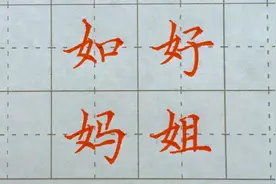 如好
妈姐